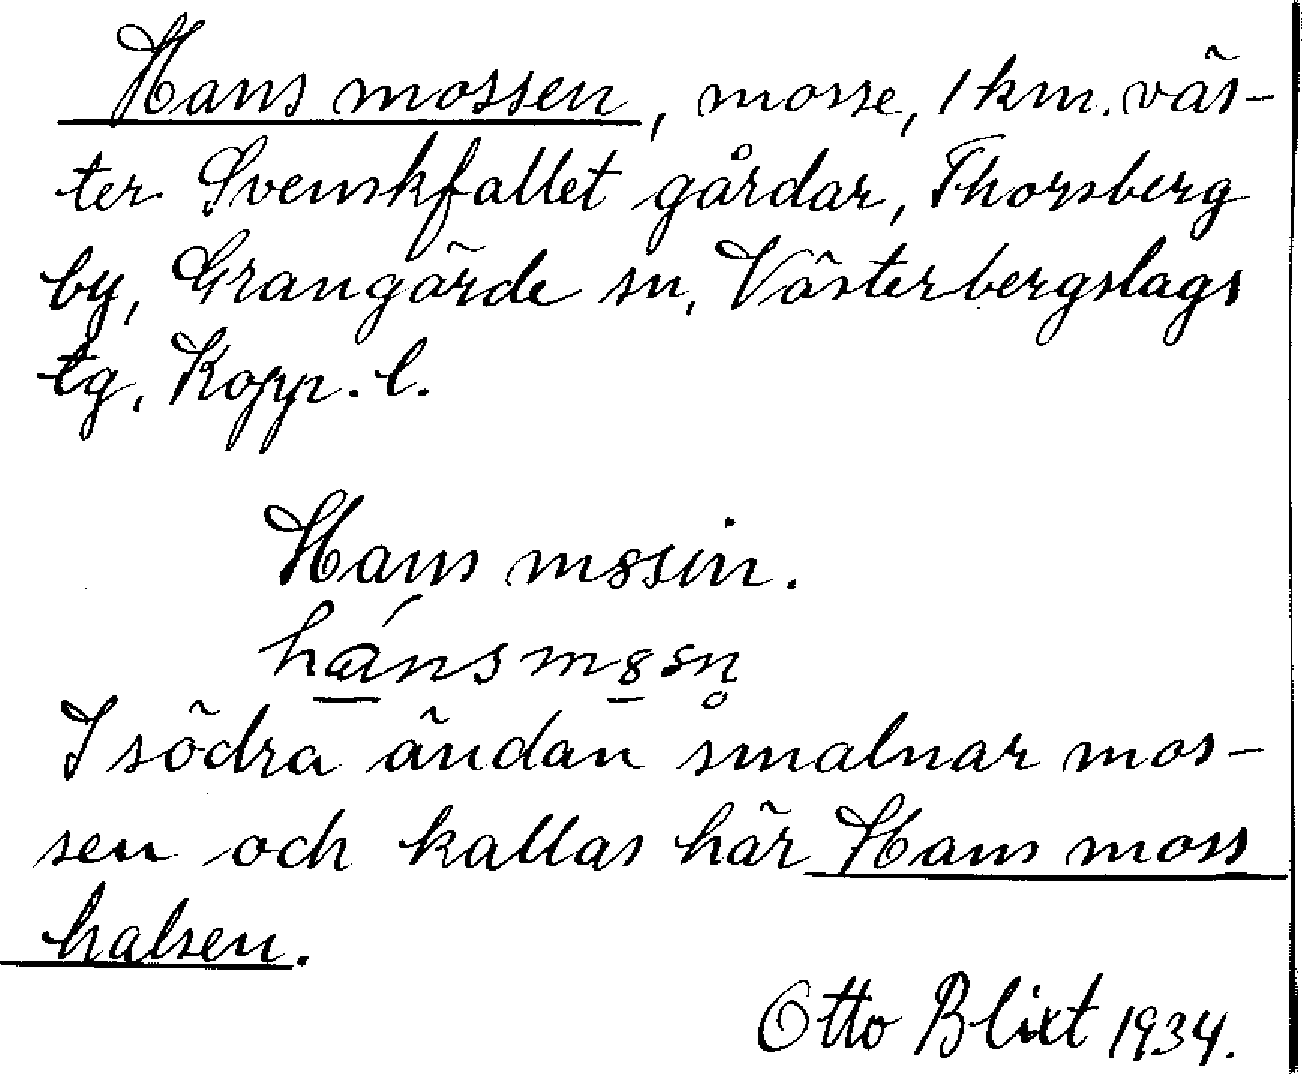 Hans mossen, mosse, 1 km. väs-
ter Svenskfallet gårdar, Thorsberg
by, Grangärde sn, Västerbergslags
tg, Kopp. l.
Hans m8sin.
hánsm8sn̥
I södra ändan smalnar mos-
sen och kallas här Hans moss
halsen.
Otto Blixt 1934.